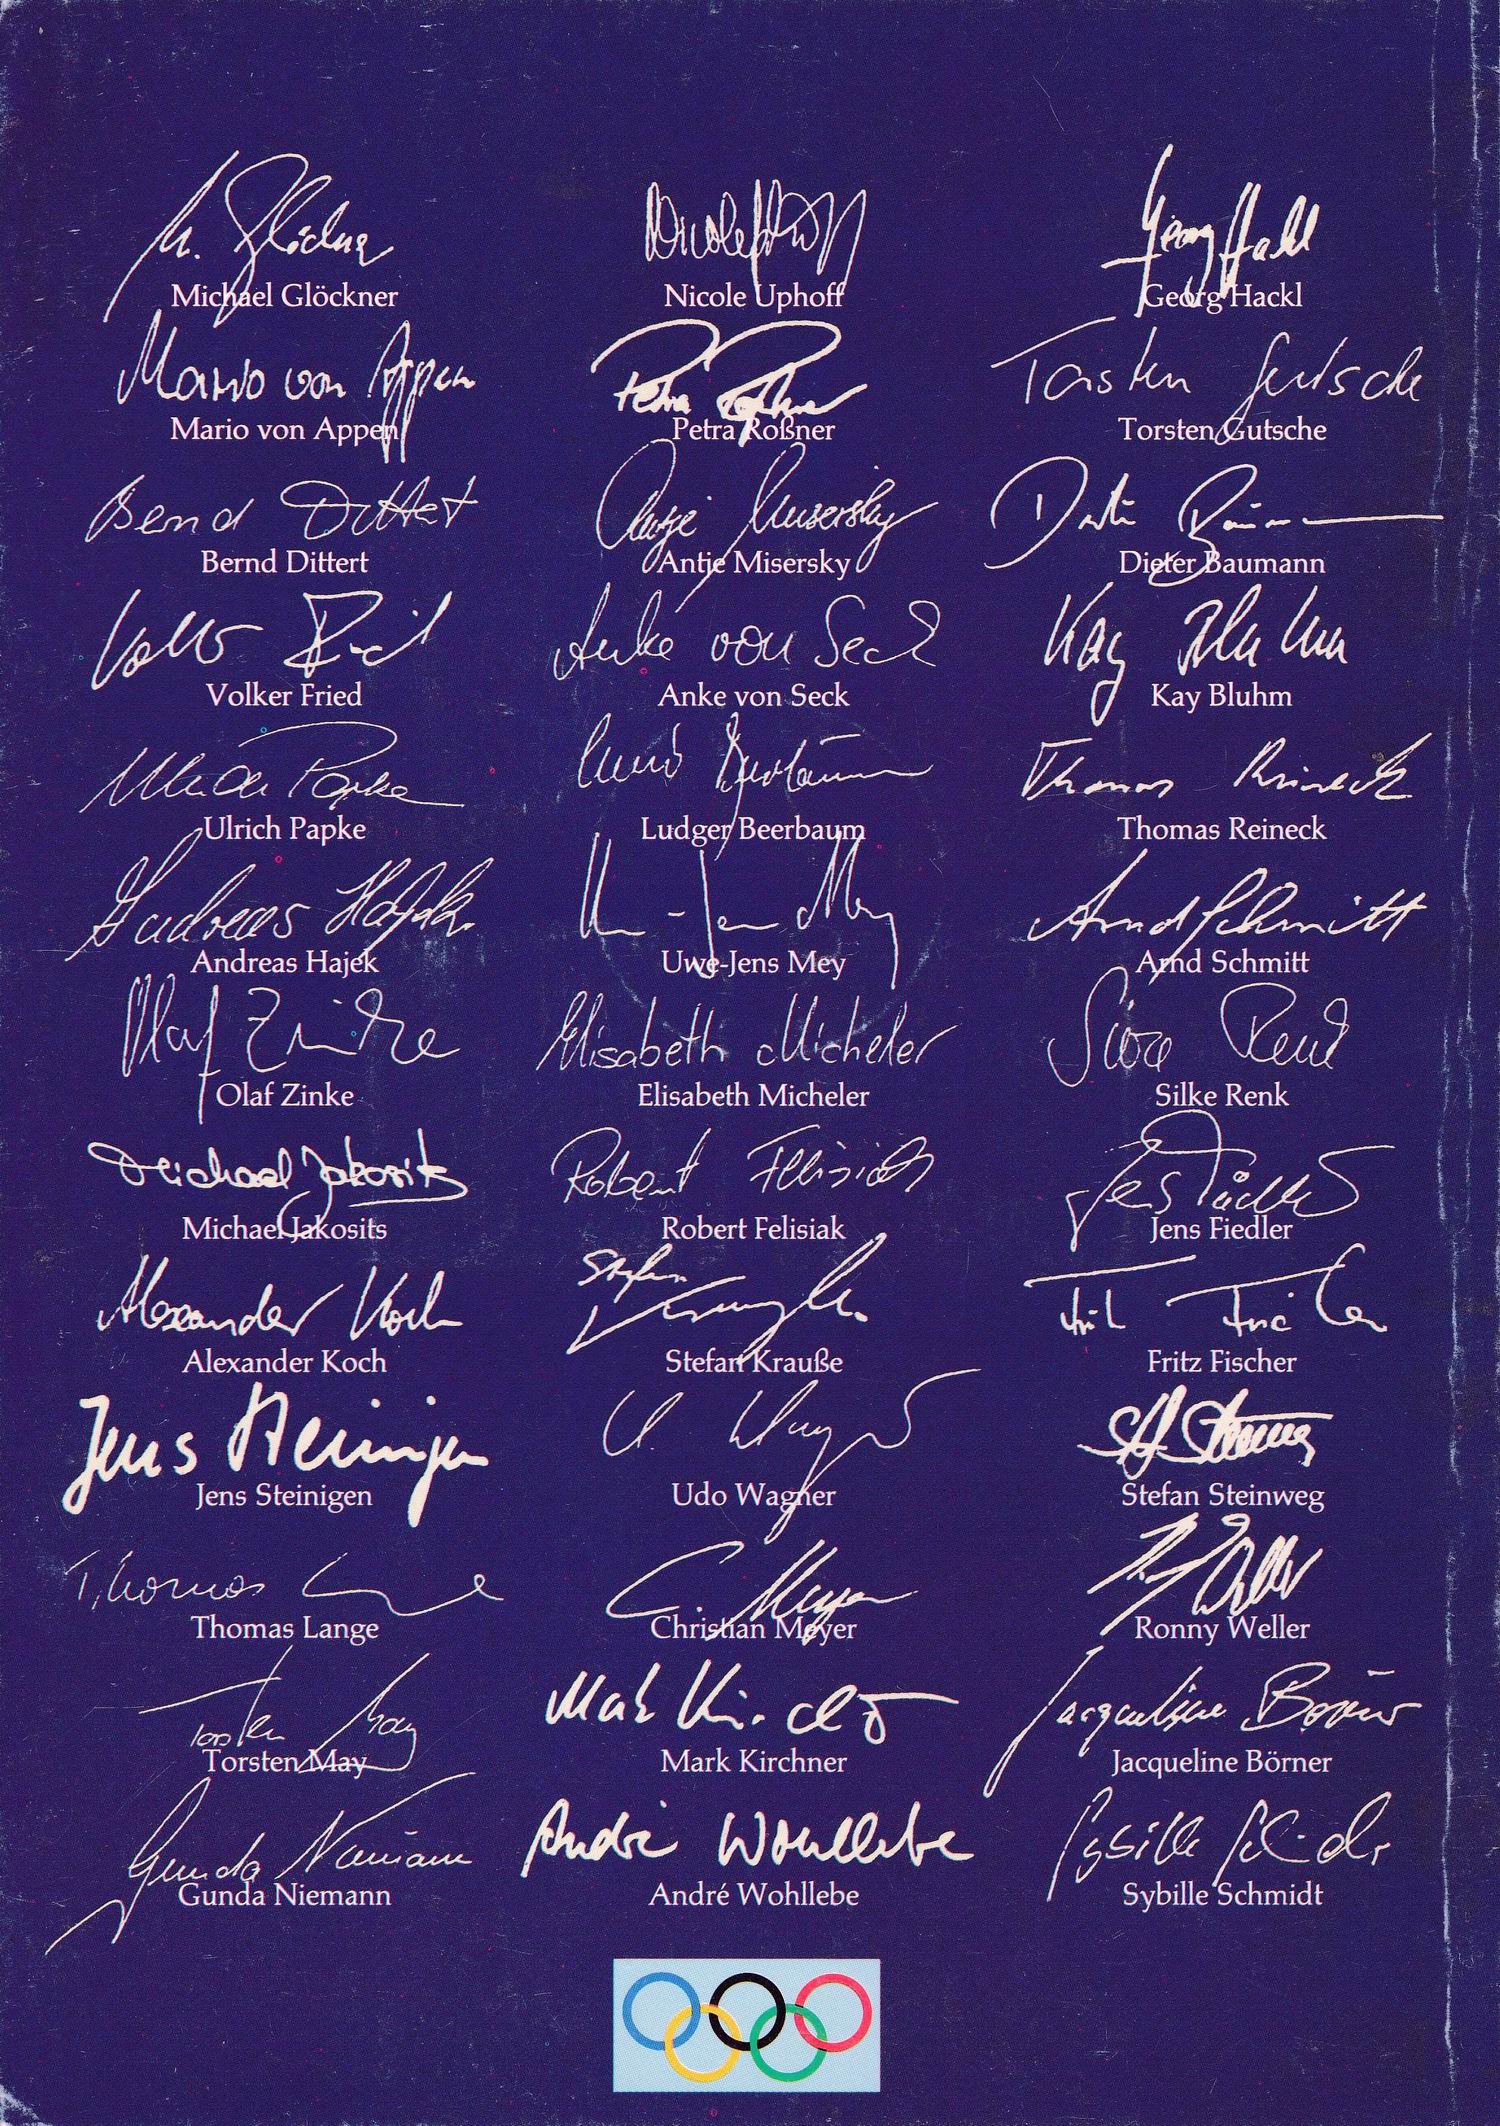 Michael Glöckner Nicole Uphoff Georg Hackl
Mario von Appen Petra Roßner Torsten Gutsche
Bernd Dittert Antje Misersky Dieter Baumann
Volker Fried Anke von Seck Kay Bluhm
Ulrich Papke Ludger Beerbaum Thomas Reineck
Andreas Hajek Uwe-Jens Mey Arnd Schmitt
Olaf Zinke Elisabeth Micheler Silke Renk
Michael Jakosits Robert Felisiak Jens Fiedler
Alexander Koch Stefan Krauße Fritz Fischer
Jens Steinigen Udo Wagner Stefan Steinweg
Thomas Lange Christian Meyer Ronny Weller
Torsten May Mark Kirchner Jacqueline Börner
Gunda Niemann André Wohllebe Sybille Schmidt